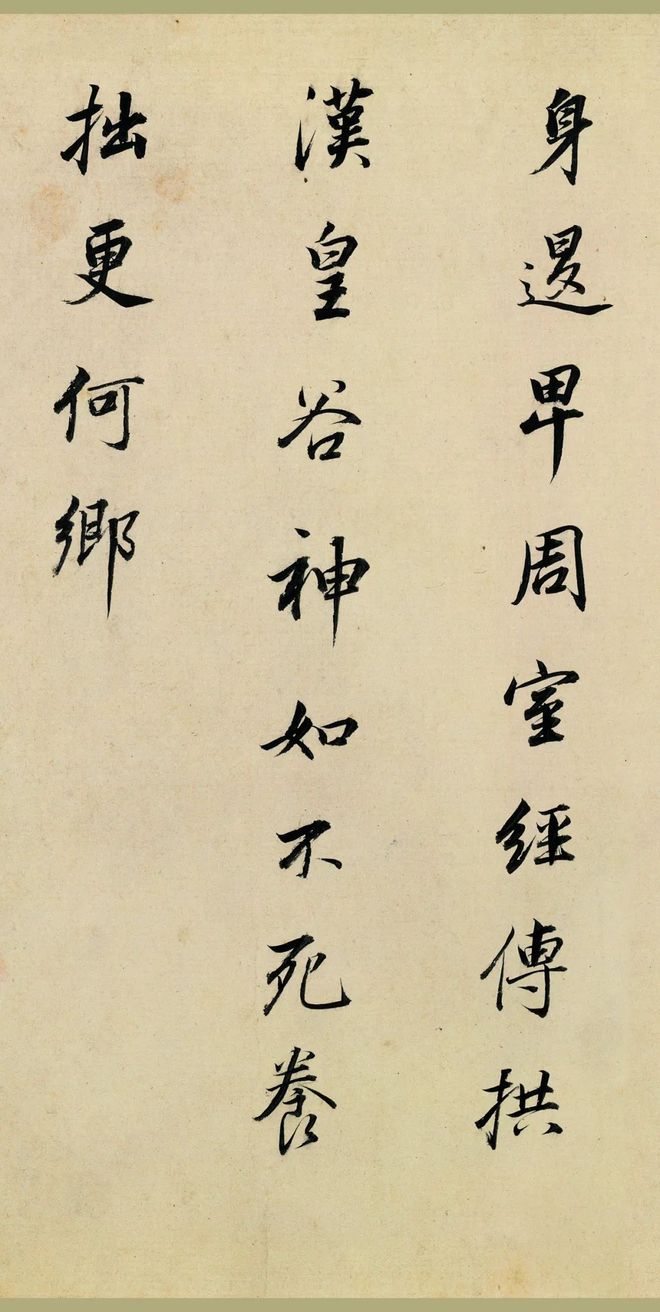 身退卑周室經傳拱
漢皇谷神如不死養
拙更何鄉